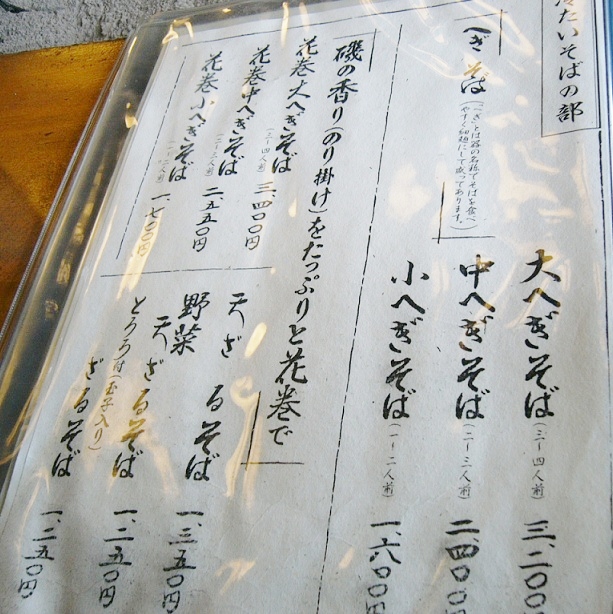 冷たいそばの部
へぎそば
(「へぎ」とは器の名称でそばを食べ
やすく細麺にして盛ってあります。)
大へぎそば(三〜四人前) 三、二〇〇
中へぎそば(二〜三人前) 二、四〇〇
小へぎそば(一〜二人前) 一、六〇〇
磯の香り(のり掛け)をたっぷりと花巻で
花巻大へぎそば(三〜四人前) 三、四〇〇円
花巻中へぎそば(二〜三人前) 二、五五〇円
花巻小へぎそば(一〜二人前) 一、七〇〇円
天ざるそば 一、三五〇円
野菜天ざるそば 一、二五〇円
とろろ付(玉子入り)ざるそば 一、二五〇円